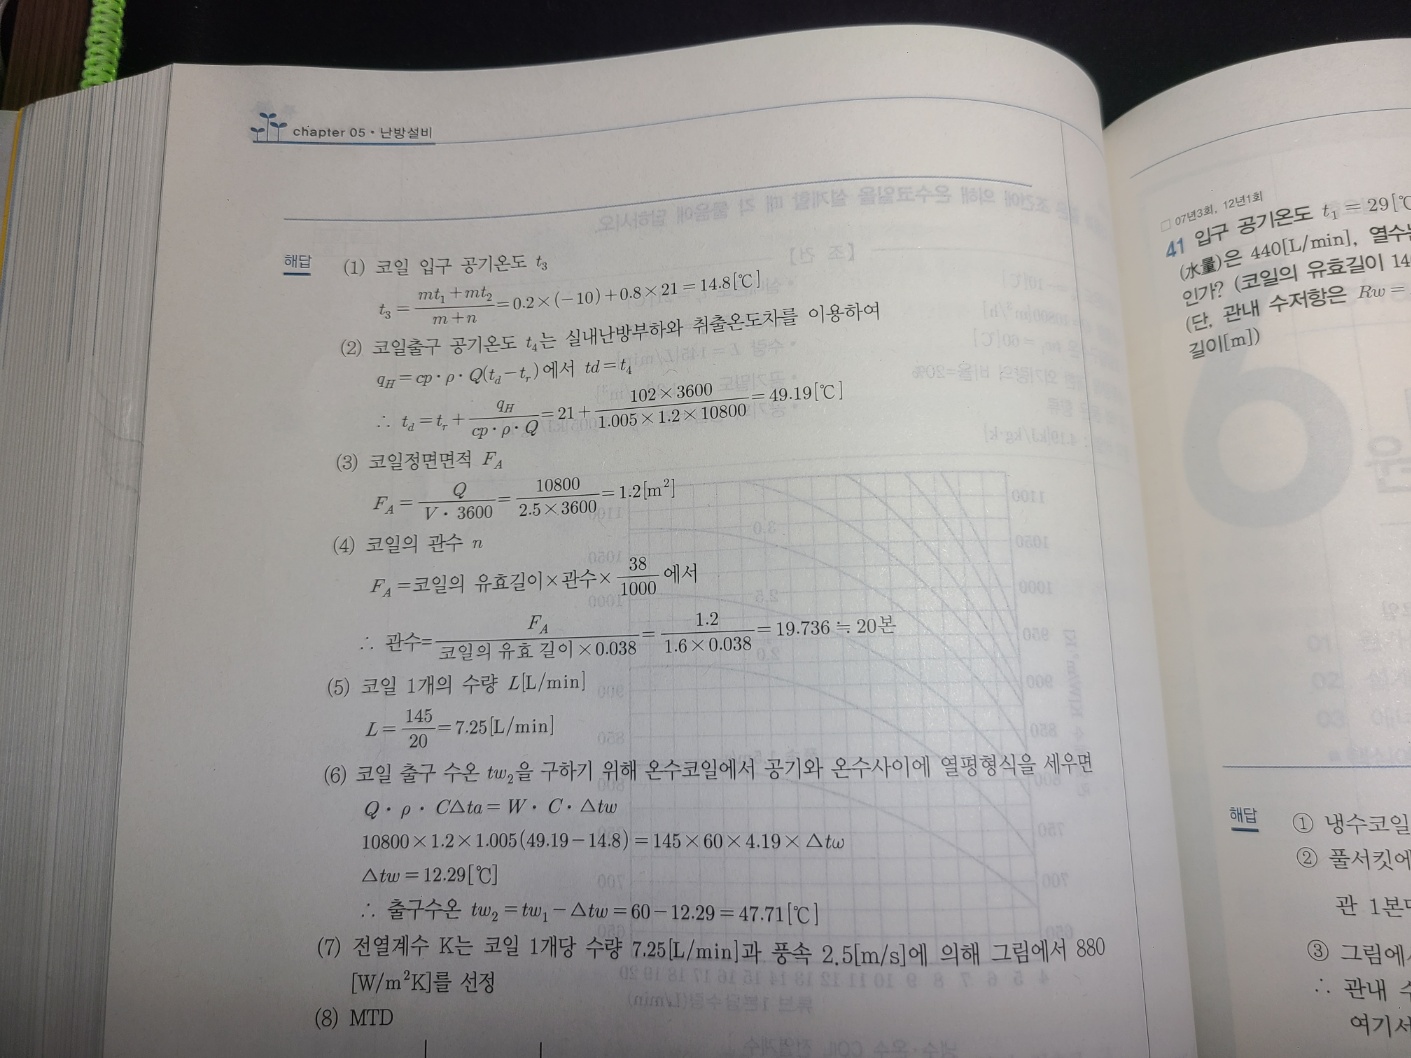 chapter 05 • 난방설비
해답
(1) 코일 입구 공기온도 t₃
t₃ = (mt₁ + mt₂)/(m + n) = 0.2×(−10)+0.8×21 = 14.8[℃]
(2) 코일출구 공기온도 t₄는 실내난방부하와 취출온도차를 이용하여
q_H = cp · ρ · Q(t_d − t_r)에서 td = t₄
∴ t_d = t_r + q_H/(cp · ρ · Q) = 21 + (102×3600)/(1.005×1.2×10800) = 49.19[℃]
(3) 코일정면면적 F_A
F_A = Q/(V · 3600) = 10800/(2.5×3600) = 1.2[m²]
(4) 코일의 관수 n
F_A = 코일의 유효길이×관수×38/1000에서
∴ 관수 = F_A/(코일의 유효 길이×0.038) = 1.2/(1.6×0.038) = 19.736 ≒ 20본
(5) 코일 1개의 수량 L[L/min]
L = 145/20 = 7.25[L/min]
(6) 코일 출구 수온 tw₂을 구하기 위해 온수코일에서 공기와 온수사이에 열평형식을 세우면
Q · ρ · C△ta = W · C · △tw
10800×1.2×1.005(49.19−14.8) = 145×60×4.19×△tω
△tw = 12.29[℃]
∴ 출구수온 tw₂ = tw₁ − △tw = 60 − 12.29 = 47.71[℃]
(7) 전열계수 K는 코일 1개당 수량 7.25[L/min]과 풍속 2.5[m/s]에 의해 그림에서 880
[W/m²K]를 선정
(8) MTD
□ 07년3회, 12년1회
41 입구 공기온도 t₁ = 29[℃
(水量)은 440[L/min], 열수는
인가? (코일의 유효길이 14
(단, 관내 수저항은 Rw =
길이[m])
해답
① 냉수코일
② 풀서킷에
관 1본
③ 그림에서
∴ 관내 수
여기서